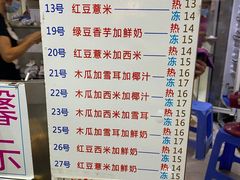 13号 红豆薏米 热 13
冻 14
19号 绿豆香芋加鲜奶 热 14
冻 15
20号 红豆薏米加西米 热 14
冻 15
21号 木瓜加雪耳加椰汁 热 16
冻 17
22号 木瓜加西米加椰汁 热 16
冻 17
23号 木瓜加西米加雪耳 热 16
冻 17
25号 木瓜加雪耳加鲜奶 热 16
冻 17
26号 红豆西米加鲜奶 热 14
冻 15
27号 红豆薏米加鲜奶 热 14
冻 15
馨